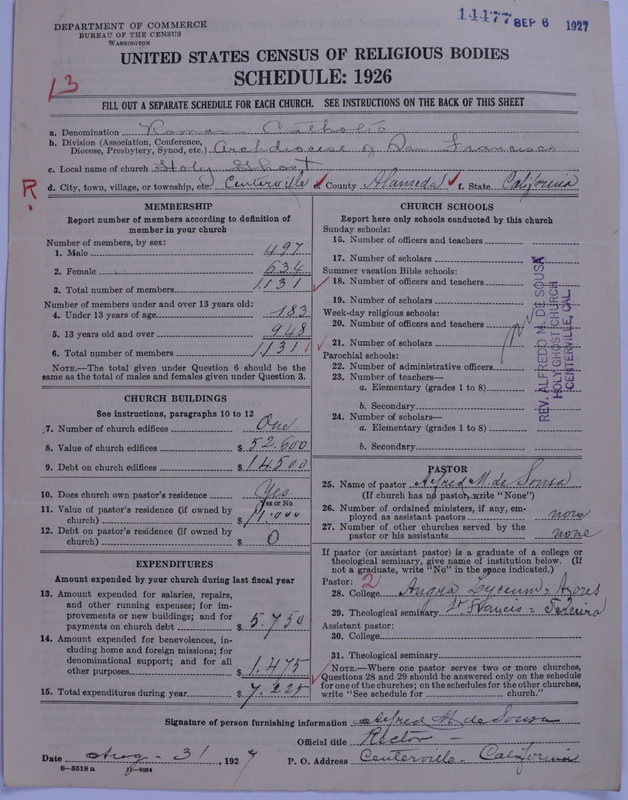 DEPARTMENT OF COMMERCE
BUREAU OF THE CENSUS
WASHINGTON
14477 SEP 6 1927
UNITED STATES CENSUS OF RELIGIOUS BODIES
SCHEDULE: 1926
13
FILL OUT A SEPARATE SCHEDULE FOR EACH CHURCH. SEE INSTRUCTIONS ON THE BACK OF THIS SHEET
a. Denomination Roman Catholic
b. Division (Association, Conference, Diocese, Presbytery, Synod, etc.) Archdiocese of San Francisco
c. Local name of church Holy Ghost
R. d. City, town, village, or township, etc. Centerville e. County Alameda f. State California
MEMBERSHIP
Report number of members according to definition of
member in your church
Number of members, by sex:
1. Male 497
2. Female 634
3. Total number of members 1131
Number of members under and over 13 years old:
4. Under 13 years of age 183
5. 13 years old and over 948
6. Total number of members 1131
NOTE.—The total given under Question 6 should be
same as the total of males and females given under Question 3.
CHURCH BUILDINGS
See instructions, paragraphs 10 to 12
7. Number of church edifices One
8. Value of church edifices $ 52.600
9. Debt on church edifices $ 14500
10. Does church own pastor's residence Yes
Yes or No
11. Value of pastor's residence (if owned by
church) $
12. Debt on pastor's residence (if owned by
church) $ 0
EXPENDITURES
Amount expended by your church during last fiscal year
13. Amount expended for salaries, repairs,
and other running expenses; for im-
provements or new buildings; and for
payments on church debt $ 5.750
14. Amount expended for benevolences, in-
cluding home and foreign missions; for
denominational support; and for all
other purposes $ 1.475
15. Total expenditures during year $ 7.225
CHURCH SCHOOLS
Report here only schools conducted by this church
Sunday schools:
16. Number of officers and teachers
17. Number of scholars
Summer vacation Bible schools:
18. Number of officers and teachers
19. Number of scholars
Week-day religious schools:
20. Number of officers and teachers
21. Number of scholars
Parochial schools:
22. Number of administrative officers
23. Number of teachers—
a. Elementary (grades 1 to 8)
b. Secondary
24. Number of scholars—
a. Elementary (grades 1 to 8)
b. Secondary
REV. ALFREDO M. DE SOUSA
HOLY GHOST CHURCH
CENTERVILLE, CAL.
PASTOR
25. Name of pastor Alfred M. de Sousa
(If church has no pastor, write "None")
26. Number of ordained ministers, if any, em-
ployed as assistant pastors none
27. Number of other churches served by the
pastor or his assistants none
If pastor (or assistant pastor) is a graduate of a college or
theological seminary, give name of institution below. (If
not a graduate, write "No" in the space indicated.)
Pastor: 2
28. College Angra Lyceum - Azores
29. Theological seminary St Francis - Terceira
Assistant pastor:
30. College
31. Theological seminary
NOTE.—Where one pastor serves two or more churches,
Questions 28 and 29 should be answered only on the schedule
for one of the churches; on the schedules for the other churches,
write "See schedule for church."
Signature of person furnishing information Alfred M. de Sousa
Official title Rector -
Date Aug - 31, 1927 P. O. Address Centerville - California
6-5518 a